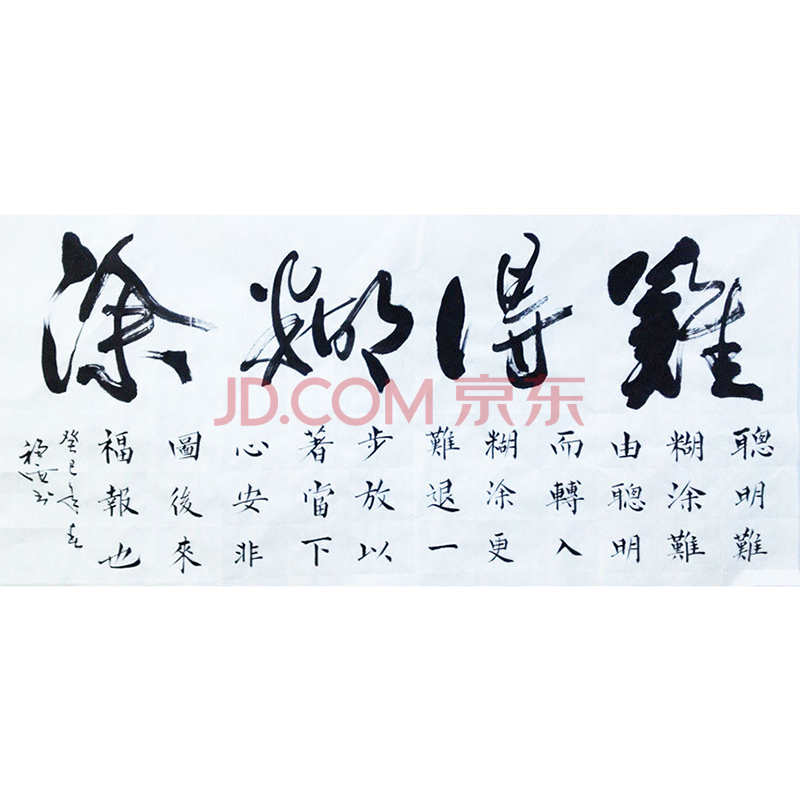 難得糊涂
聰明難
糊涂難
由聰明
而轉入
糊涂更
難退一
步放以
著當下
心安非
圖後來
福報也
癸巳年春
JD.COM 京东